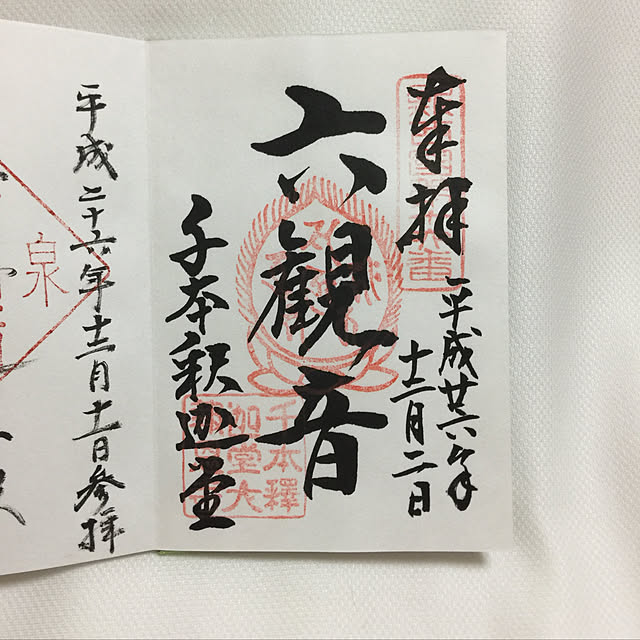 奉拝
平成廿六年
十二月二日
六観音
千本釈迦堂
千本釋
迦堂大
平成二十六年十二月十一日参拝
泉